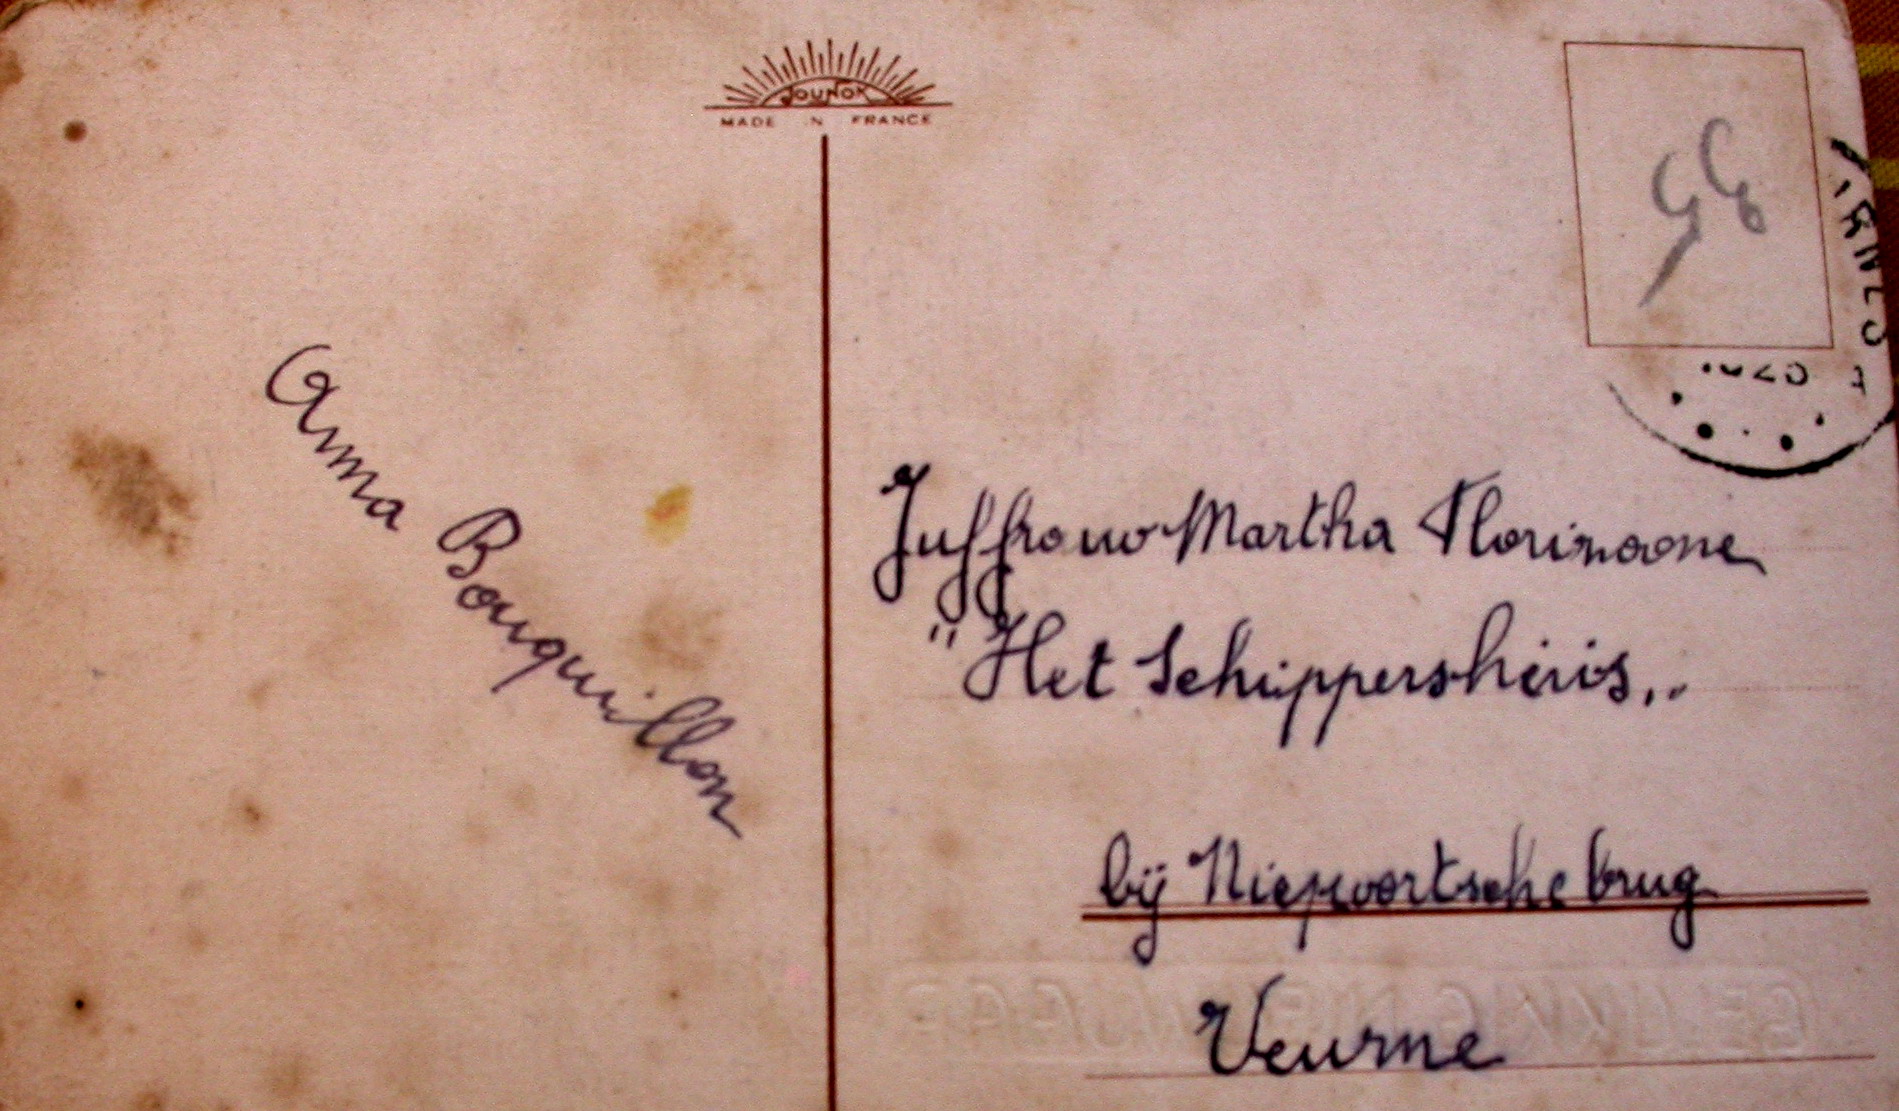 JOUNOK
MADE IN FRANCE
Anna Bouquillon
Juffrouw Martha Florizoone
"Het Schippershuis"
bij Nieuwpoortsche brug
Veurne
GELUKKIG NIEUWJAAR